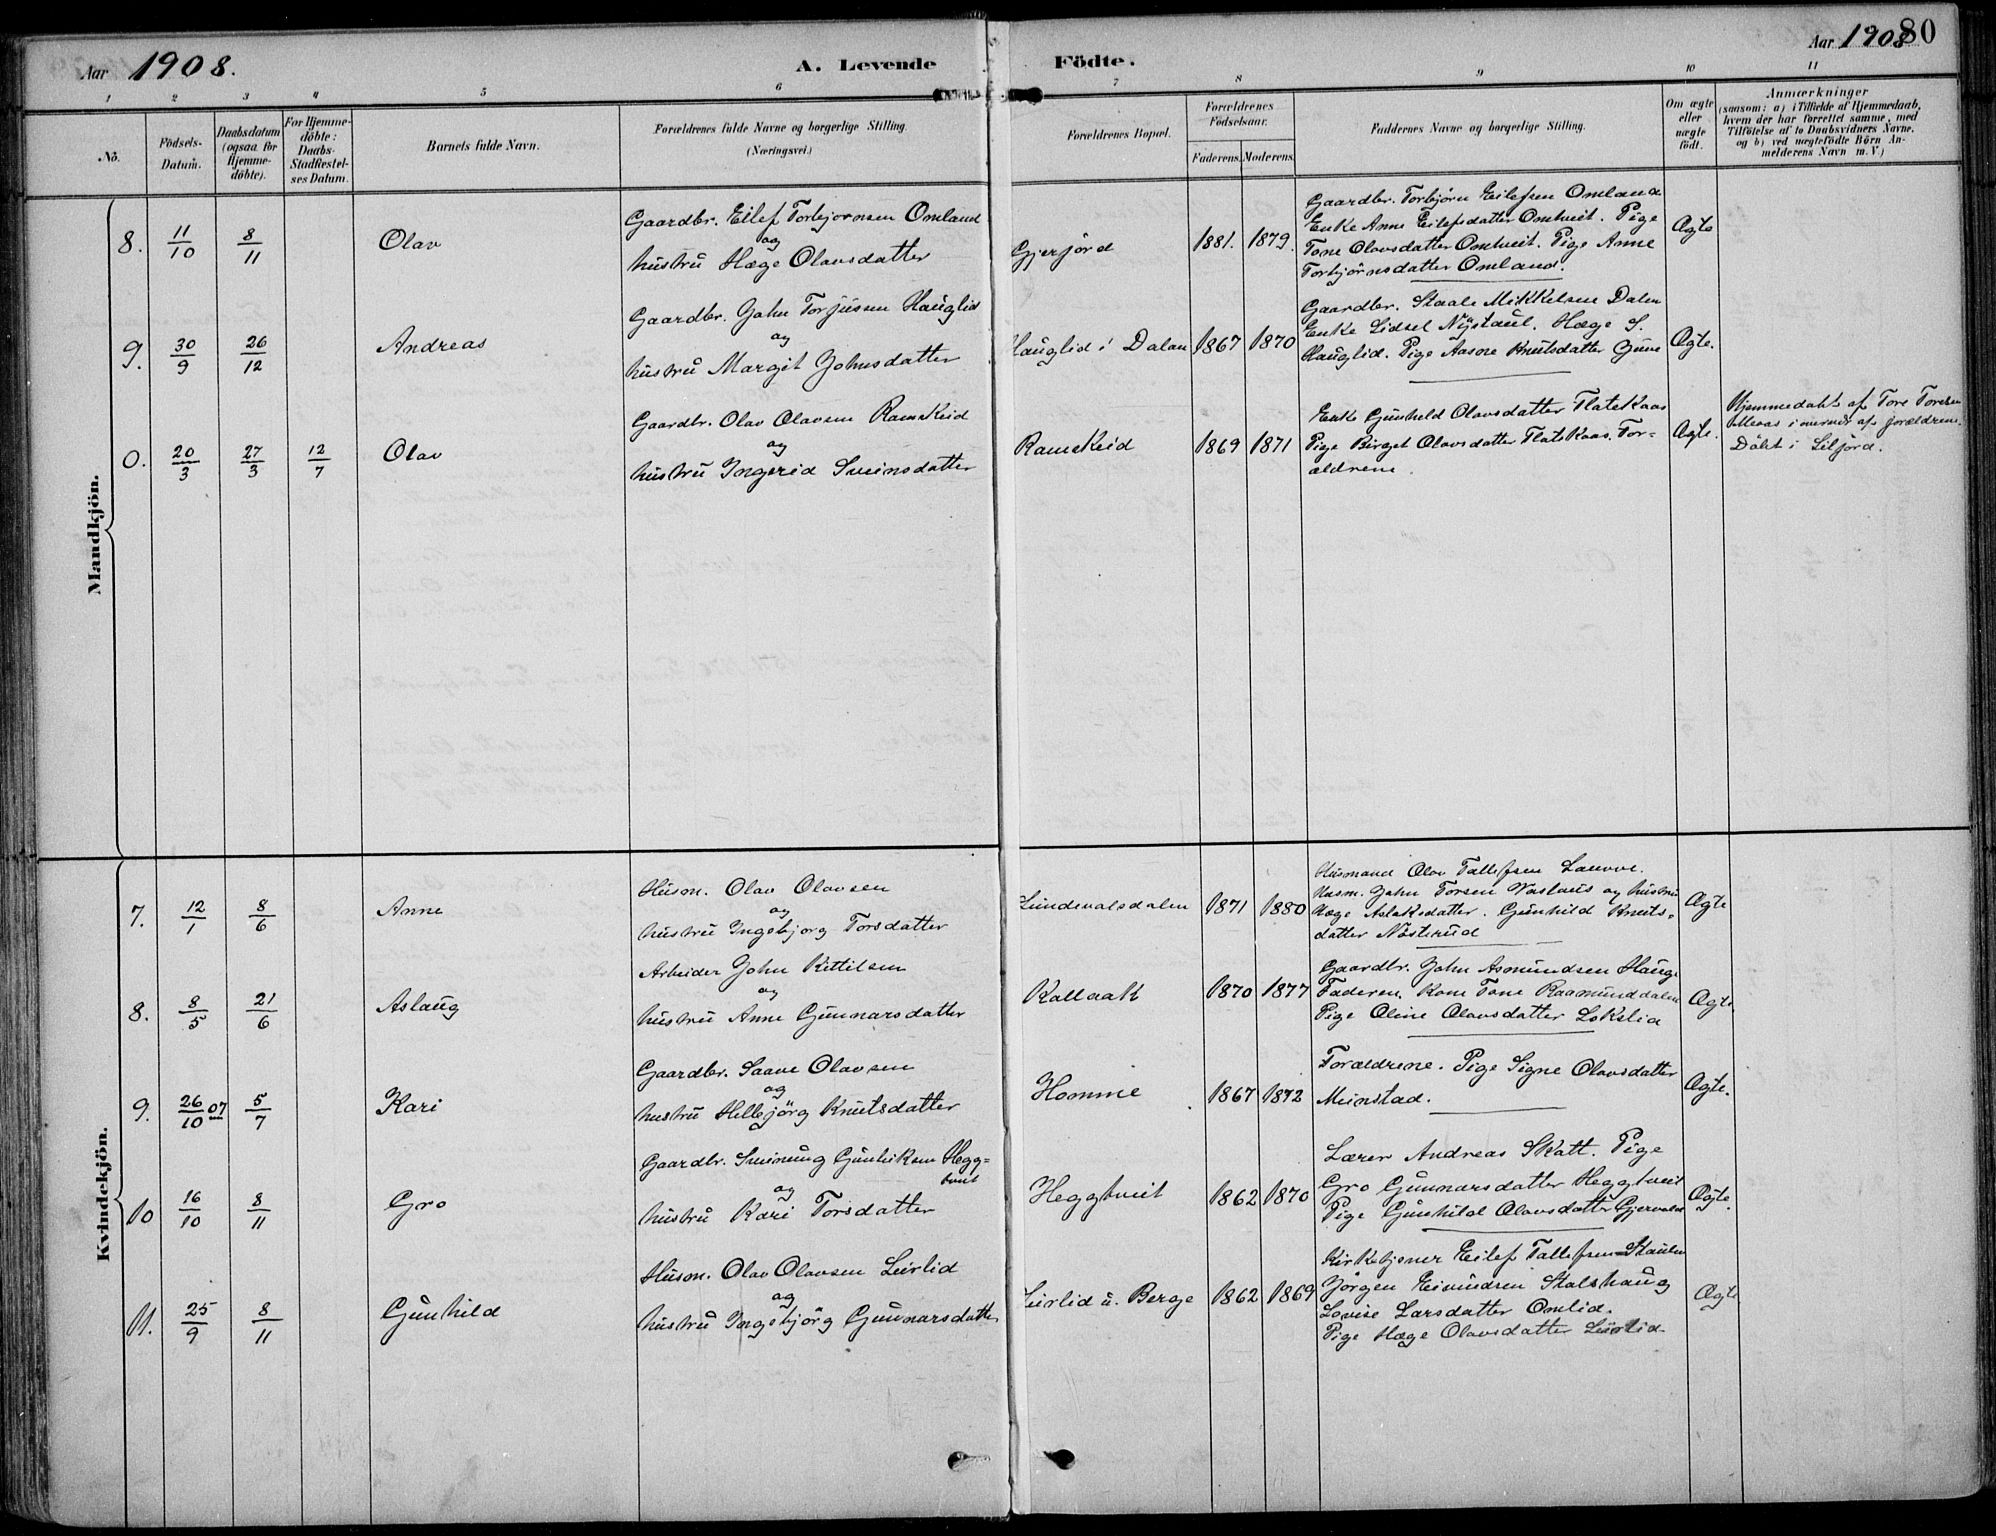 Aar 1908.
A. Levende Födte.
Aar 1908
80
1 2 3 4 5 6 7 8 9 10 11
No.
Födsels-
Datum.
Daabsdatum
(ogsaa for
Hjemme-
döbte).
For Hjemme-
döbte:
Daabs-
Stadfæstel-
ses Datum.
Barnets fulde Navn.
Forældrenes fulde Navne og borgerlige Stilling.
(Næringsvei.)
Forældrenes Bopæl.
Forældrenes
Födselsaar.
Faderens. Moderens.
Faddernes Navne og borgerlige Stilling.
Om ægte
eller
uægte
födt.
Anmærkninger
(saasom: a) i Tilfælde af Hjemmedaab,
hvem der har forrettet samme, med
Tilföielse af to Daabsvidners Navne.
og b) ved uægtefödte Börn An-
melderens Navn m. V.)
Mandkjön.
8. 11/10 8/11 Olav
Gaardbr. Eilef Torbjørnsen Omland
og
hustru Hæge Olavsdatter
Gjerjörd 1881. 1879.
Gaardbr. Torbjörn Eilefsen Omland
Enke Anne Eilefsdatter Omtveit. Pige
Tone Olavsdatter Omtveit. Pige Anne
Torbjörnsdatter Omland.
Ægte
9. 30/9 26/12 Andreas
Gaardbr. John Torjusen Hauglid
og
hustru Margit Johnsdatter
Hauglid i Dalan 1867 1870
Gaardbr. Staale Mikkelsen Dalen
Enke Lidsel Nystaul. Hæge S.
Hauglid. Pige Aasne Knutsdatter
Ægte.
0. 20/3 27/3 12/7 Olav
Gaardbr. Olav Olavsen Ramskeid
og
hustru Ingerid Sveinsdatter
Ramskeid 1869 1871
Enke Gunhild Olavsdatter Flatekaas
Pige Birget Olavsdatter Flatekaas. For-
ældrene.
Ægte.
Hjemmedöbt af Tore Toresen
i nærvær af forældrene.
Döbt i
Kvindekjön.
7. 12/1 8/6 Anne
Husm. Olav Olavsen
og
hustru Ingebjorg Torsdatter
Lundevalsdalen 1871 1880
Husmand Olav Tallefsen
Husm. John Torsen og hustru
Hæge Aslaksdatter. Gunhild Knuts-
datter Nösterud
Ægte
8. 8/5 21/6 Aslaug
Arbeider John Kittilsen
og
hustru Anne Gunnarsdatter
Kallaak 1870 1877
Gaardbr. John Asmundsen Hauge
Faderen. Kone Tone Raamunddalen
Pige Oline Olavsdatter Lokslia
Ægte
9. 26/10 07 5/7 Kari
Gaardbr. Saave Olavsen
og
hustru Hellejörg Knutsdatter
Homme 1867 1872
Forældrene. Pige Signe Olavsdatter
Meinstad.
Ægte.
10 16/10 8/11 Gro
Gaardbr. Sveinung Gunleiksen Hegg=
tveit
og
hustru Kari Torsdatter
Heggtveit 1862 1870
Lærer Andreas Skatt. Pige
Gro Gunnarsdatter Heggtveit
Pige Gunhild Olavsdatter
Ægte.
11. 25/9 8/11 Gunhild
Husm. Olav Olavsen Leirlid
og
hustru Ingebjörg Gunnarsdatter
Leirlid u. Berge 1862 1869
Kirketjener Eilef Tallefsen Staulen
Jörgen Eivindsen Stalshaug
Lovise Larsdatter Omlid.
Pige Hæge Olavsdatter Leirlid
Ægte